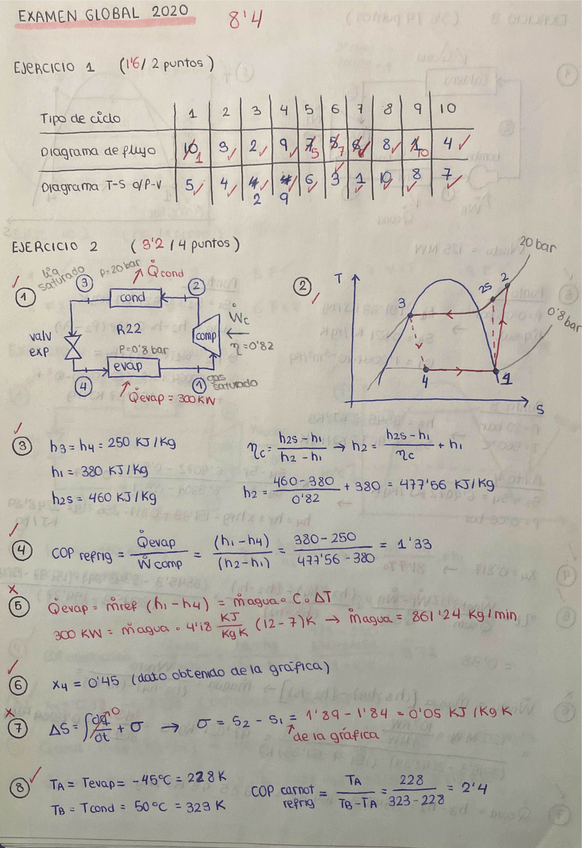 EXAMEN GLOBAL 2020
8'4
EJERCICIO 1 (1'6/2 puntos)
Tipo de ciclo 1 2 3 4 5 6 7 8 9 10
Diagrama de flujo 10 1 3 2 9 7 5 5 7 6 8 1 10 4
Diagrama T-S o/P-V 5 4 2 9 6 3 1 10 8 7
EJERCICIO 2 (3'2/4 puntos)
1
líq saturado
3
P=20bar
Qcond
2
cond
valv exp
R22
comp
Wc
η=0'82
P=0'8 bar
evap
4
1
gas saturado
Qevap = 300KW
2
T
20 bar
2s
2
3
0'8 bar
4
1
S
3
h3 = h4 = 250 KJ/Kg
h1 = 380 KJ/Kg
h2s = 460 KJ/Kg
ηc = h2s - h1 / h2 - h1 → h2 = h2s - h1 / ηc + h1
h2 = 460 - 380 / 0'82 + 380 = 477'56 KJ/Kg
4
COP refrig = Qevap / Wcomp = (h1 - h4) / (h2 - h1) = 380 - 250 / 477'56 - 380 = 1'33
5
Qevap = mref (h1 - h4) = magua · C · ΔT
300 KW = magua · 4'18 KJ/KgK (12-7)K → magua = 861'24 Kg/min
6
x4 = 0'45 (dato obtenido de la gráfica)
7
ΔS = ∫ dq/dt 0 + σ → σ = S2 - S1 = 1'89 - 1'84 = 0'05 KJ/Kg K
de la gráfica
8
TA = Tevap = -45°C = 228 K
TB = Tcond = 50°C = 323 K
COP carnot refrig = TA / TB - TA = 228 / 323 - 228 = 2'4